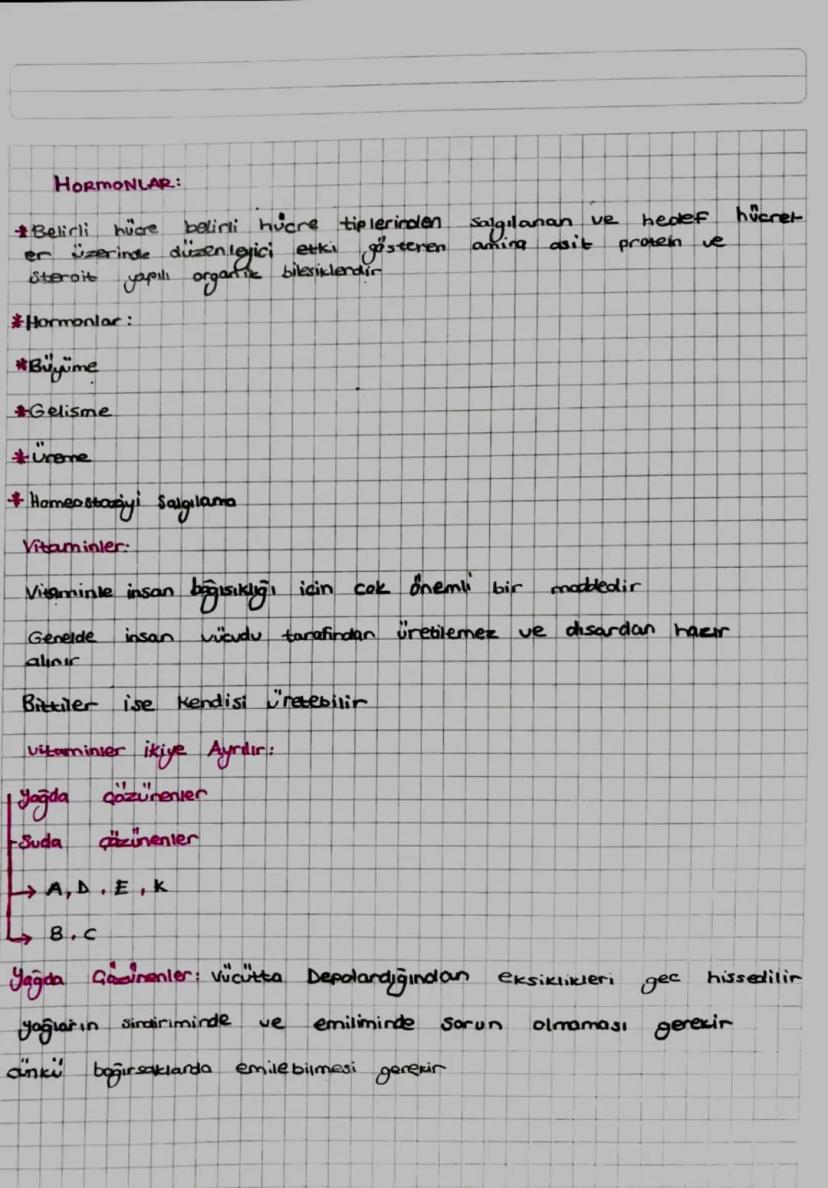 HORMONLAR:
*Belirli hücre belirli hücre tiplerinden salgılanan ve hedef hücrel
er üzerinde düzenleyici etki gösteren amino asit protein ve
steroit yapılı organik bilesiklendir
*Hormonlar:
*Büyüme
*Gelisme
*Üreme
*Homeostaziyi Salgılama
Vitaminler:
Vitaminle insan bağısıklığı icin cok önemli bir maddedir
Genelde insan vücudu tarafından üretilemez ve dısardan hazır
alınır
Bittiler ise Kendisi üretebilir
vitaminler ikiye Ayrılır:
Yağda çözünenler
Suda çözünenler
→ A, D, E, K
→ B, C
Yağda Cözünenler: Vücütta Depolardığından eksiklikleri gec hissedilir
yağların sindiriminde ve emiliminde sorun olmaması gerekir
cünkü bağırsaklarda emilebilmesi gerekir